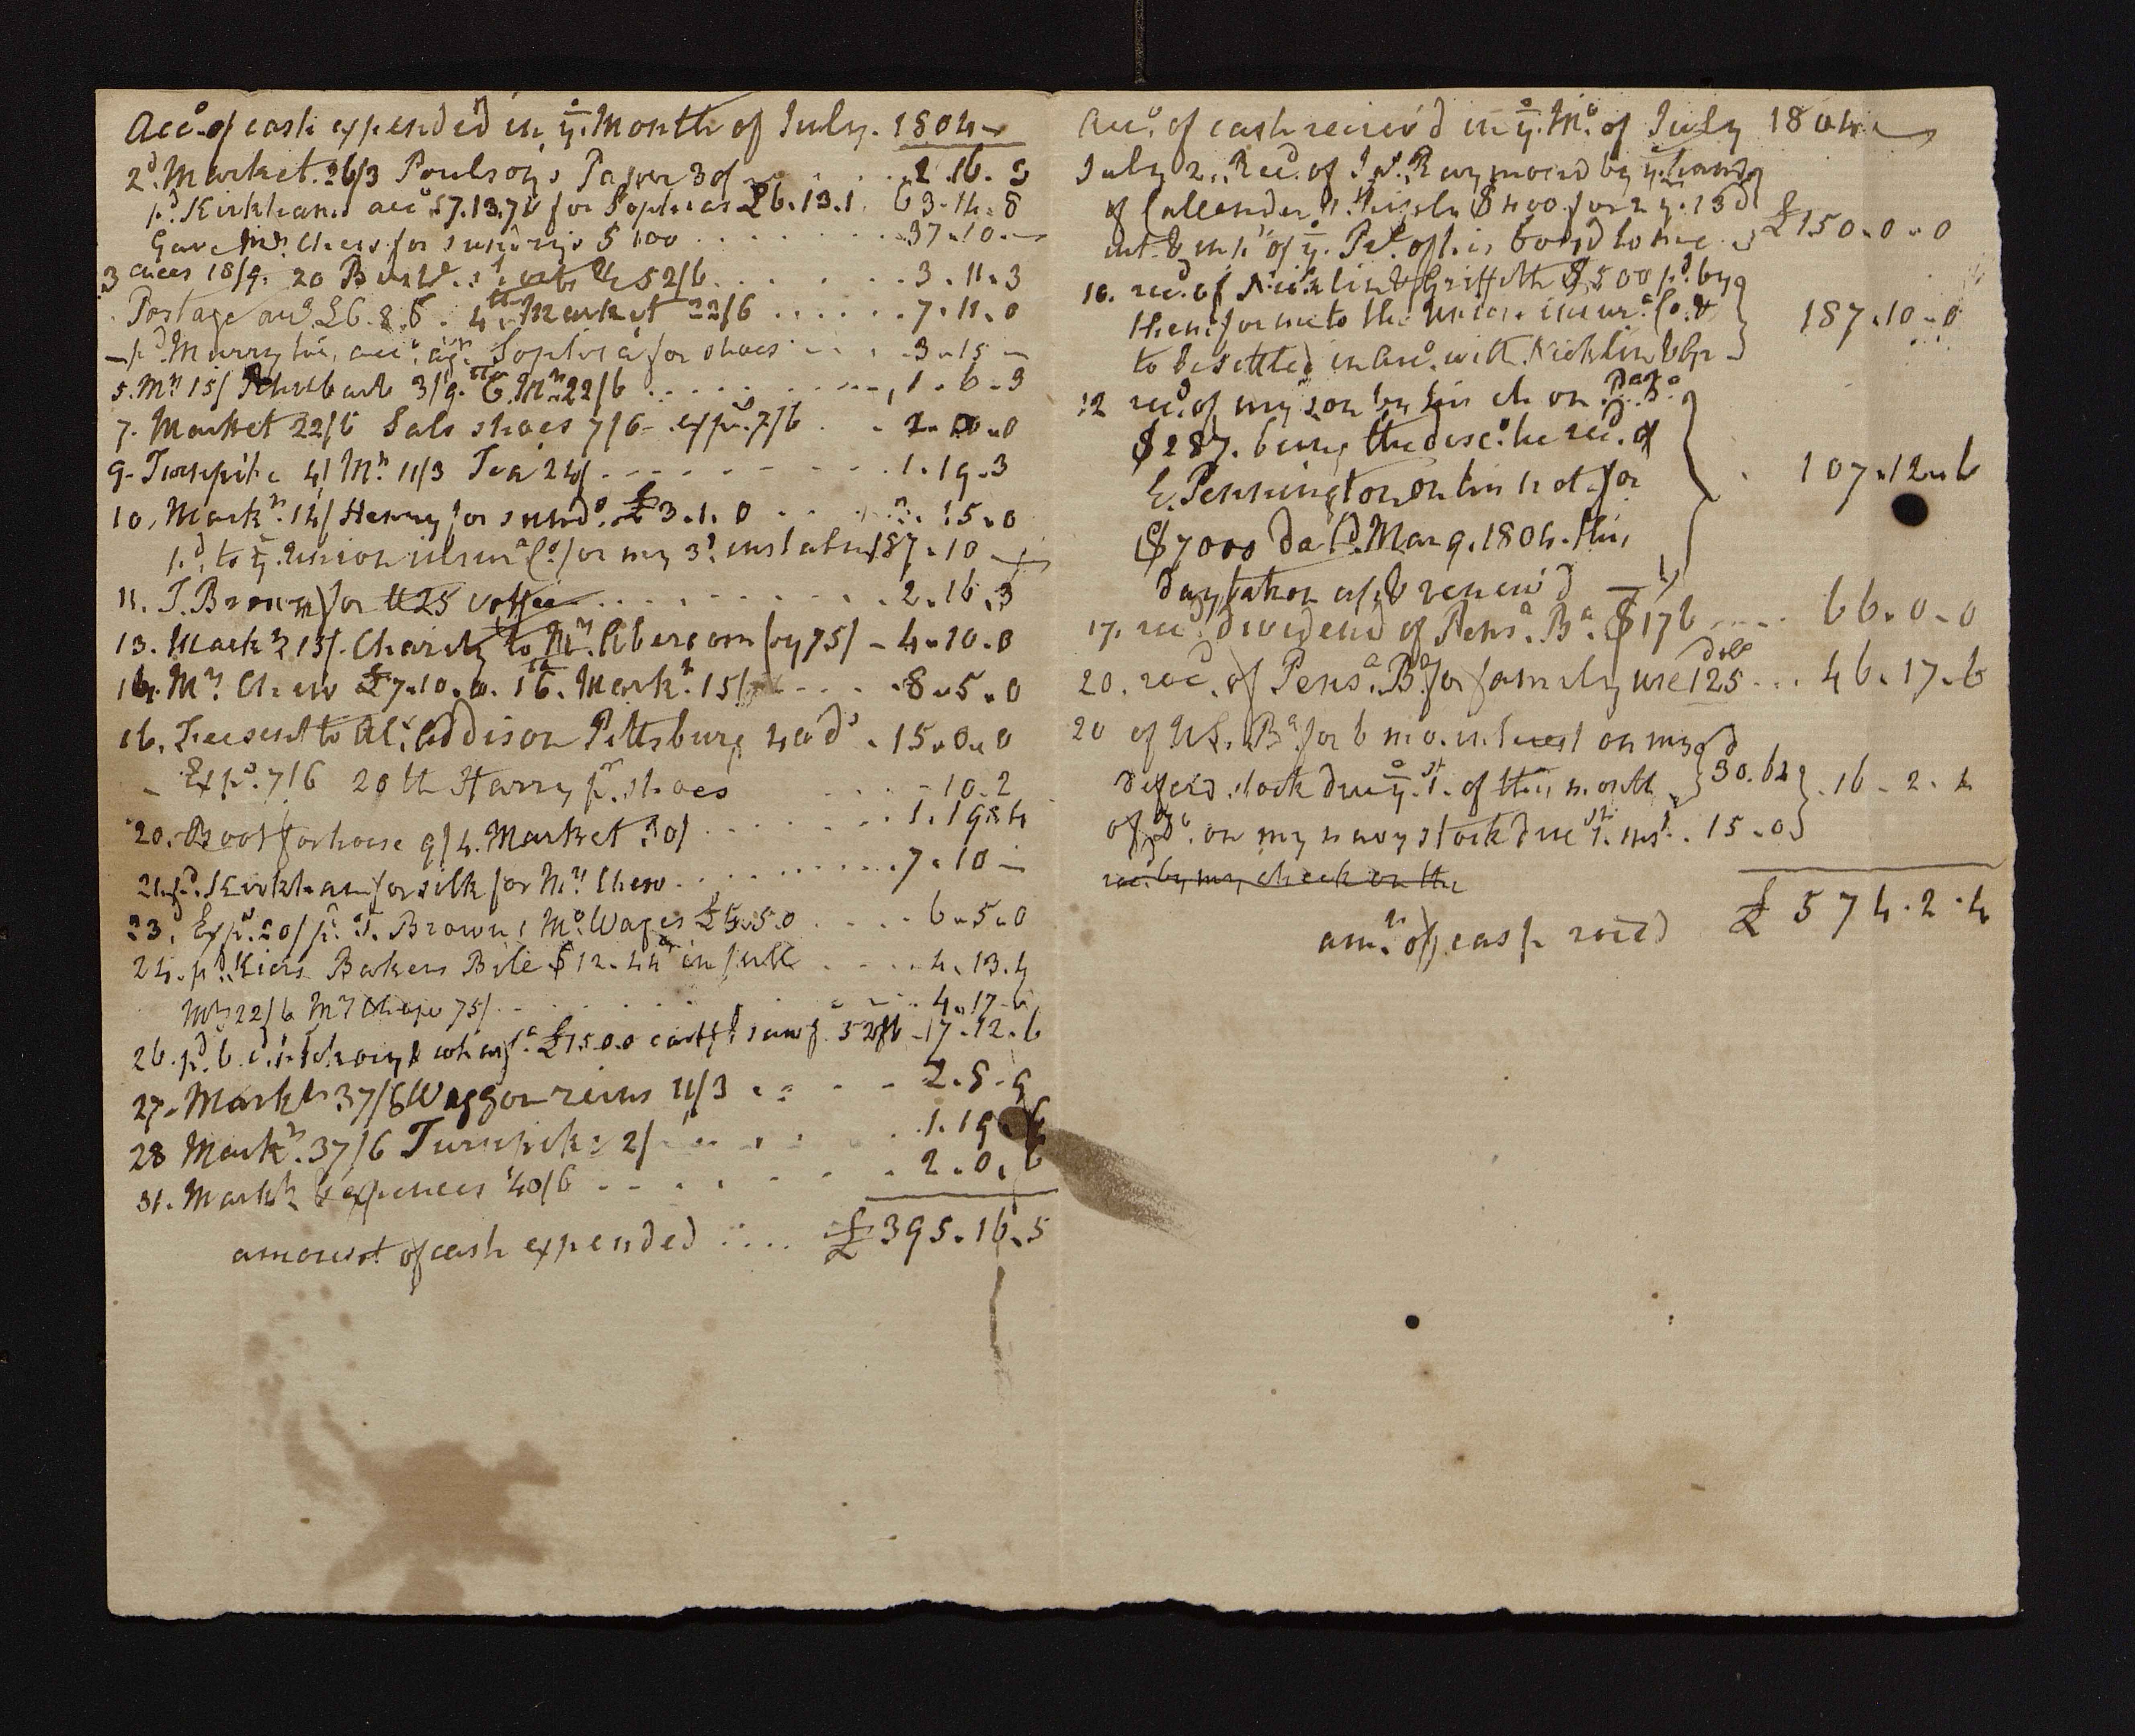 Acco. of cash expended in ye. Month of July. 1804
2d. Market. 26/3 Poulson's Paper 30/ ...... 2.16.3
pd. Kirkham's acco 57.13.7 & for Sophias £6.13.1. 63.14.8
Gave Mrs. Chew for sundrys $100 ....... 37.10.-
3 18/9. 20 Bush. 52/6 ...... 3.11.3
Postage acco. £6.8.6. 4th. Market 22/6 ...... 7.11.0
- pd. Murry his acco. agt. Sophia for shoes ... 3.15 -
5. Mt. 15/ Rhubarb 3/9. 6th. Mt. 22/6 ....... 1.6.3
7. Market 22/6 Sals shoes 7/6 - exps. 7/6 ..
9. Turnpike 4/ Mt. 11/3 Tea 24/ ........ 1.19.3
10. Markt. 14/ Henry for sunds. £3.1.0 .... 15.0
pd. to ye. Union insura. Co. for my 3d. instalmt 187.10 -
11. T. Brown for lb 25 Coffee .......... 2.16.3
13. Markt 15/. Charity to Mr. Abercromby 75/ - 4.10.0
14. Mrs Chew £7.10.0. 16th. Markt. 15/ .... 8.5.0
16. Fee sent to Alr. Addison Pittsburg 40 ds . 15.0.0
- Exps. 7/6 20th Harry pr. shoes .... 10.2
20. Boot for horse 9/4. Market 30/ ....... 1.19.4
21. pd. Kirkham for silk for Mrs Chew .......... 7.10 -
23. Exps. 20/ pd. T. Brown 1 Mo. Wages £5.5.0 .... 6.5.0
24. pd. Kiers Bakers Bile $12.44 in full .... 4.13.4
Mt 22/6 Mrs Chew 75/ ........ 4.17.6
26. pd. 6 wharfa. £15.0.0 cartg. & sawg. 52/6 - 17.12.6
27. Markt 37/6 Waggon reins 11/3 .. - - 2.8.9
28 Markt. 37/6 Turnpike 2/ ...... 1.19.6
31. Markt & expences 40/6 ...... 2.0.6
amount of cash expended .... £395.16.5
Acco. of cash receiv'd in ye. Mo. of July 1804
July 2. Recd. of Raymond by ye. hands
of Callender $400 for 2 y. 13 d
int. & in pt of ye. Prl. of his bond to me £150.0.0
10. recd. of Nicklin & Griffith $500 pd. by
them for me to the Union insura. Co. &
to be settled in Acco. with Nicklin & Gr 187.10.0
12 recd. of my son by his ch on Pena. Ba.
$287. being the disco. he recd. of
E. Pennington on his note for
$7000 datd. Mar 9. 1804. this
day taken up & renew'd 107.12.6
17. recd. dividend of Pensa. Ba. $176 .... 66.0.0
20. recd. of Pensa. Ba for family use 125 dolls ... 46.17.6
20 of US. Ba for 6 mo. interest on my
deferd stock due ye. 1st. of this month 30.64
of Do. on my navy stock due 1st. inst. . 15.0 16.2.4
rec. by my check on the
amt. of cash rec'd £ 574.2.4